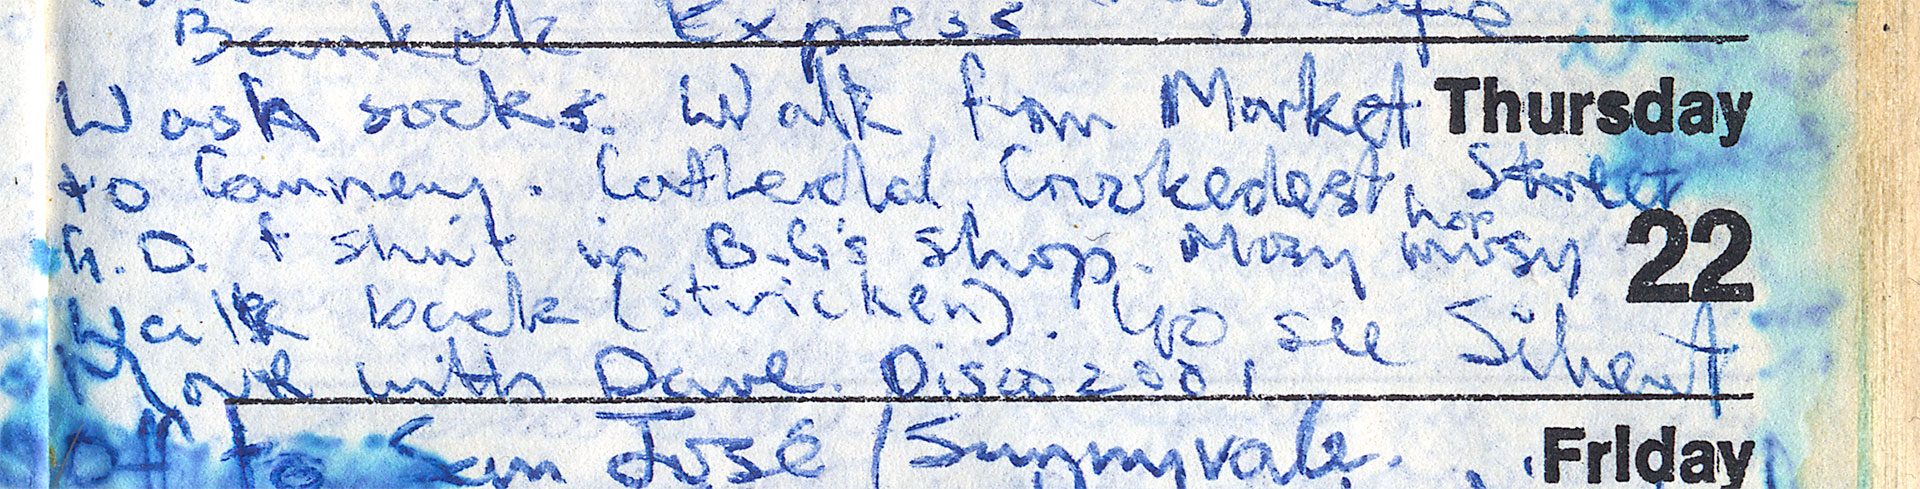 Bankok Express
Wash socks. Walk from Market Thursday
to Cannery. Cathedral Crookedest Street
G.D. t shirt in B.G's shop. Mosy hop mosy 22
Walk back (stricken). Go see Silent
Movie with Dave. Disco 2001
Off to San José / Sunnyvale. Friday